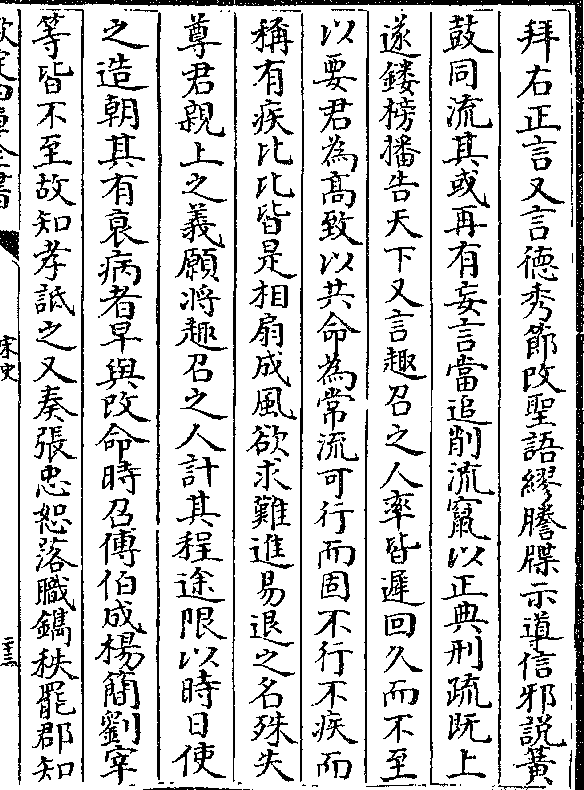 拜右正言又言德秀節改聖語繆謄牒示導信邪説簧
鼓同流其或再有妄言當追削流竄以正典刑疏既上
遂鏤榜播告天下又言趣召之人率皆遲回久而不至
以要君為髙致以共命為常流可行而固不行不疾而
稱有疾比比皆是相扇成風欲求難進易退之名殊失
尊君親上之義願將趣召之人計其程途限以時日使
之造朝其有衰病者早與改命時召傅伯成楊簡劉宰
等皆不至故知孝詆之又奏張忠恕落職鐫秩罷郡知
欽定四庫全書
宋史